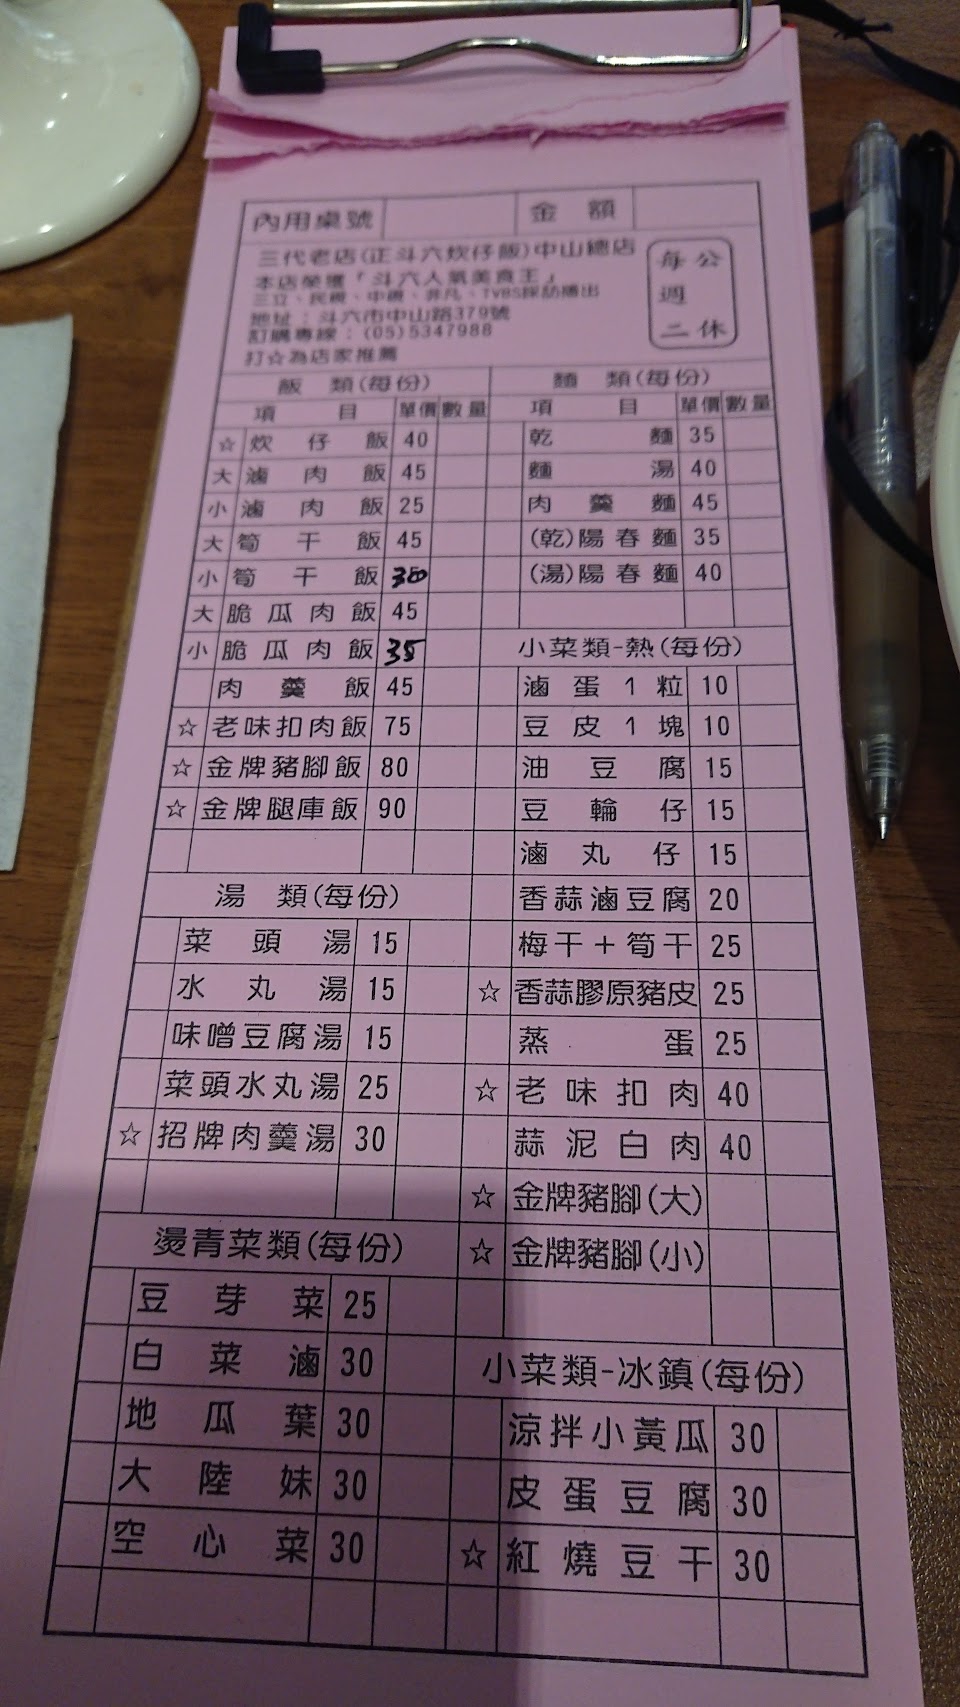 內用桌號 金額
三代老店(正斗六炊仔飯)中山總店
本店榮獲「斗六人氣美食王」
三立、民視、中視、非凡、TVBS採訪播出
地址：斗六市中山路379號
訂購專線：(05)5347988
打☆為店家推薦
每週二公休
飯類(每份)
項目 單價 數量
☆ 炊仔飯 40
大 滷肉飯 45
小 滷肉飯 25
大 筍干飯 45
小 筍干飯 30
大 脆瓜肉飯 45
小 脆瓜肉飯 35
肉羹飯 45
☆ 老味扣肉飯 75
☆ 金牌豬腳飯 80
☆ 金牌腿庫飯 90
湯類(每份)
菜頭湯 15
水丸湯 15
味噌豆腐湯 15
菜頭水丸湯 25
☆ 招牌肉羹湯 30
燙青菜類(每份)
豆芽菜 25
白菜滷 30
地瓜葉 30
大陸妹 30
空心菜 30
麵類(每份)
項目 單價 數量
乾麵 35
麵湯 40
肉羹麵 45
(乾)陽春麵 35
(湯)陽春麵 40
小菜類-熱(每份)
滷蛋1粒 10
豆皮1塊 10
油豆腐 15
豆輪仔 15
滷丸仔 15
香蒜滷豆腐 20
梅干+筍干 25
☆ 香蒜膠原豬皮 25
蒸蛋 25
☆ 老味扣肉 40
蒜泥白肉 40
☆ 金牌豬腳(大)
☆ 金牌豬腳(小)
小菜類-冰鎮(每份)
涼拌小黃瓜 30
皮蛋豆腐 30
☆ 紅燒豆干 30